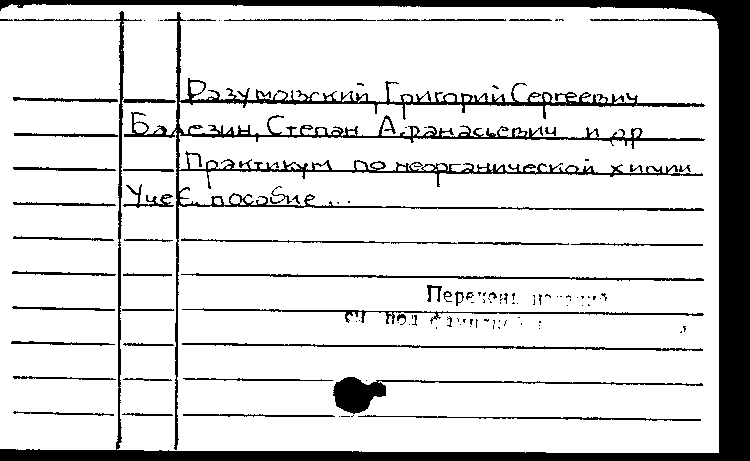 Разумовский, Григорий Сергеевич
Балезин, Степан Афанасьевич и др
Практикум по неорганической химии
Учеб. пособие ...
Перечень
см под